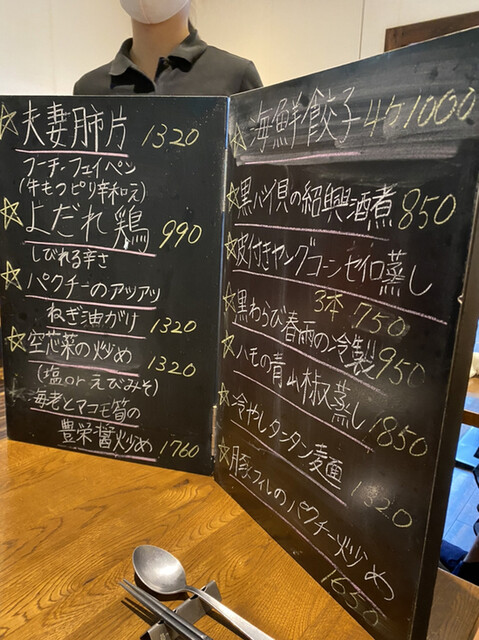 ☆夫妻肺片 1320
フーチーフェイペン
(牛もつピリ辛和え)
☆よだれ鶏 990
しびれる辛さ
☆パクチーのアツアツ
ねぎ油がけ 1320
☆空芯菜の炒め 1320
(塩orえびみそ)
☆海老とマコモ筍の
豊栄醤炒め 1760
☆海鮮餃子 4ケ1000
☆黒バイ貝の紹興酒煮 850
☆皮付きヤングコーンセイロ蒸し
3本 750
☆黒わらび春雨の冷製 950
☆ハモの青山椒蒸し 1850
☆冷やしタンタン麺 1320
☆豚フィレのパクチー炒め
1650